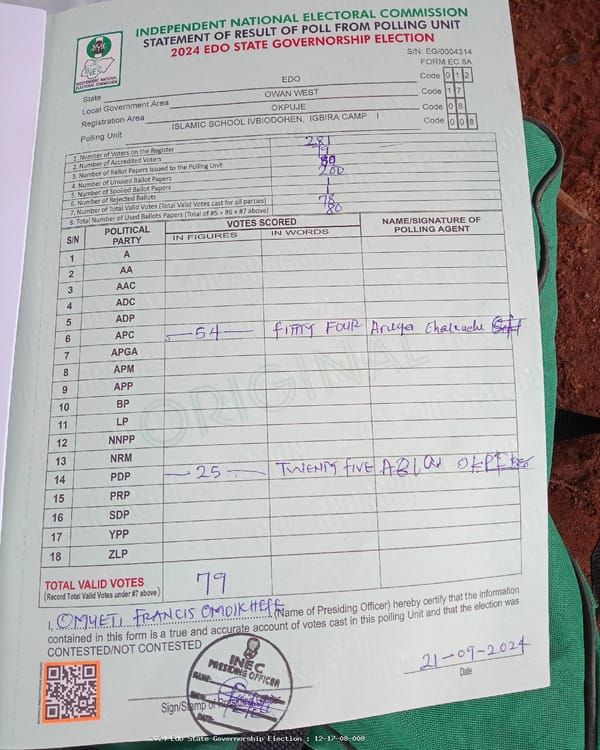 INDEPENDENT NATIONAL ELECTORAL COMMISSION
STATEMENT OF RESULT OF POLL FROM POLLING UNIT
2024 EDO STATE GOVERNORSHIP ELECTION
S/N: EG/0004314
FORM EC 8A
INEC
INDEPENDENT NATIONAL ELECTORAL COMMISSION
State EDO Code 0 1 2
Local Government Area OWAN WEST Code 1 7
Registration Area OKPUJE Code 0 8
Polling Unit ISLAMIC SCHOOL IVBIODOHEN, IGBIRA CAMP I Code 0 0 8
1. Number of Voters on the Register 281
2. Number of Accredited Voters
3. Number of Ballot Papers Issued to the Polling Unit
4. Number of Unused Ballot Papers 200
5. Number of Spoiled Ballot Papers 1
6. Number of Rejected Ballots
7. Number of Total Valid Votes (Total Valid Votes cast for all parties)
8. Total Number of Used Ballots Papers (Total of #5 + #6 + #7 above) 80
S/N POLITICAL PARTY VOTES SCORED NAME/SIGNATURE OF POLLING AGENT
IN FIGURES IN WORDS
1 A
2 AA
3 AAC
4 ADC
5 ADP
6 APC 54 FIFTY FOUR
7 APGA
8 APM
9 APP
10 BP
11 LP
12 NNPP
13 NRM
14 PDP 25 TWENTY FIVE
15 PRP
16 SDP
17 YPP
18 ZLP
ORIGINAL
TOTAL VALID VOTES 79
(Record Total Valid Votes under #7 above)
I, FRANCIS (Name of Presiding Officer) hereby certify that the information
contained in this form is a true and accurate account of votes cast in this polling Unit and that the election was
CONTESTED/NOT CONTESTED
INEC
PRESIDING OFFICER
NAME:
SIGN:
DATE:
Sign/Stamp of
21-09-2024
Date
Edo State Governorship Election : 12-17-08-008